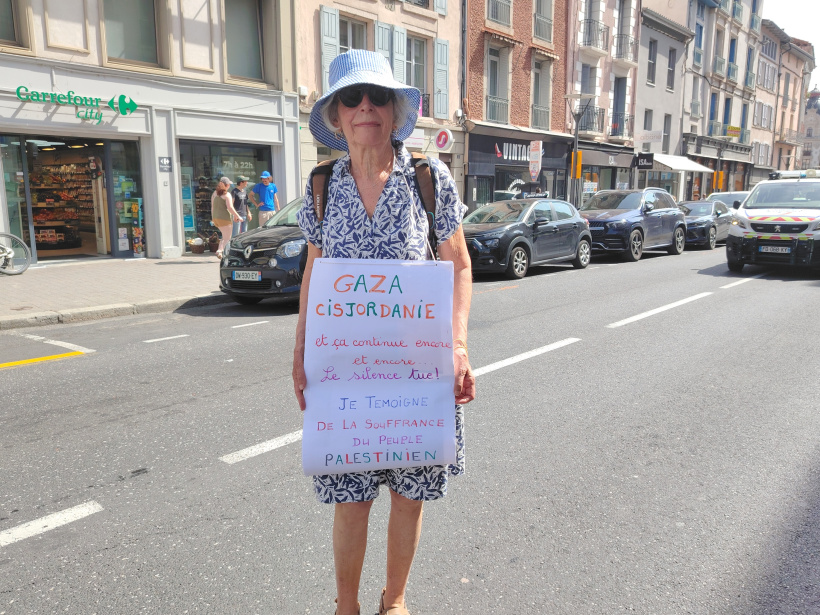 Carrefour
city
7h à 22h
VINTAG
GAZA
CISJORDANIE
et ça continue encore
et encore...
Le silence tue!
JE TEMOIGNE
DE LA SOUFFRANCE
DU PEUPLE
PALESTINIEN